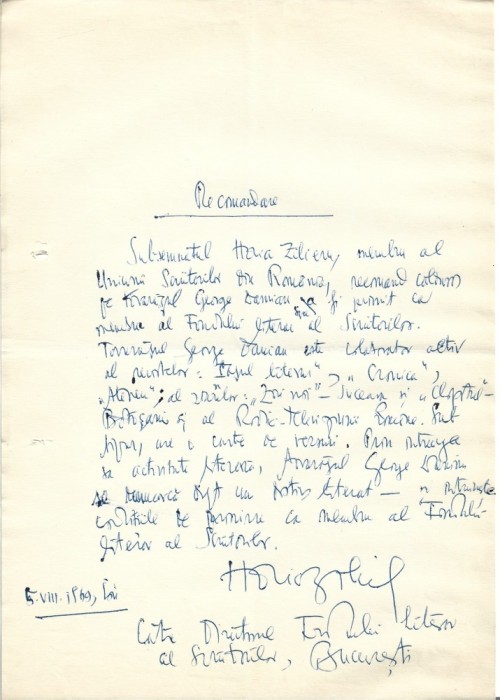 Recomandare
Subsemnatul Horia Zilieru, membru al
Uniunii Scriitorilor din România, recomand călduros
pe tovarășul George Damian să fie primit ca
membru al Fondului literar al Scriitorilor.
Tovarășul George Damian este colaborator activ
al revistelor: "Iașul literar", "Cronica",
"Ateneu"; al ziarelor: "Zori noi" - Suceava și "Clopotul" -
Botoșani și al Radio-Televiziunii Române. Sub
tipar, are o carte de versuri. Prin întreaga
sa activitate literară, tovarășul George Damian
se un literat - și întrunește
condițiile de primire ca membru al Fondului
literar al Scriitorilor.
Horia Zilieru
5.VIII.1969, Iași
Către Direcțiunea Fondului literar
al Scriitorilor, București